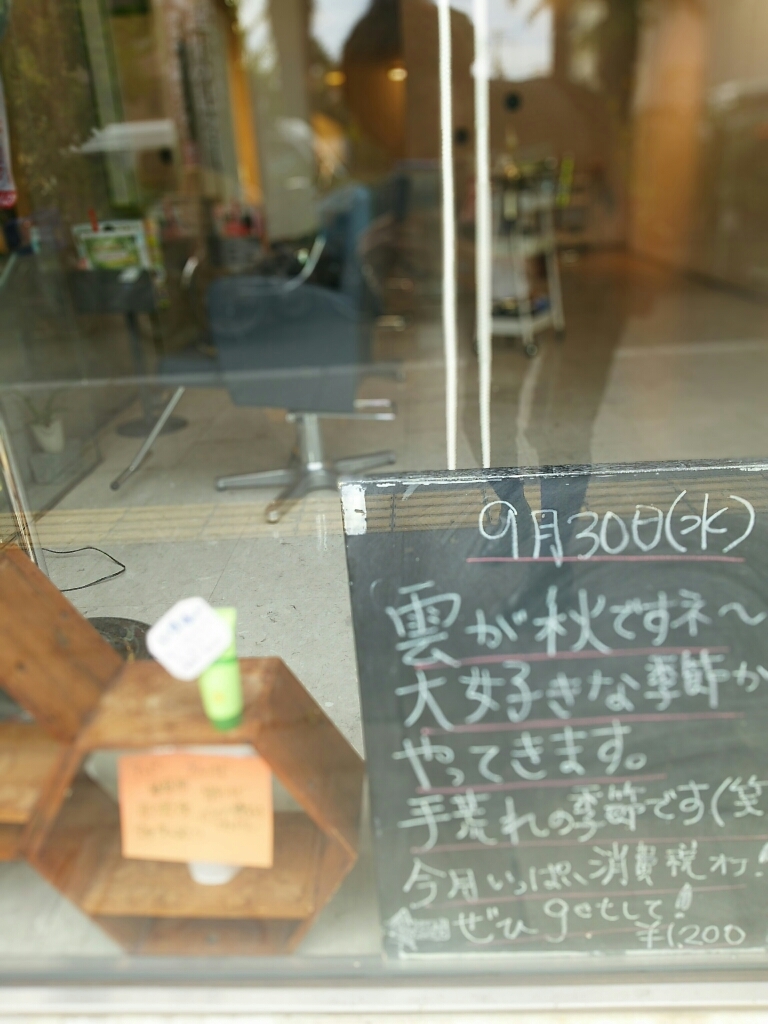 9月30日(水)
雲が秋ですネ〜
大好きな季節が
やってきます。
手荒れの季節です(笑
今月いっぱい、消費税
ぜひgetして!
¥1,200